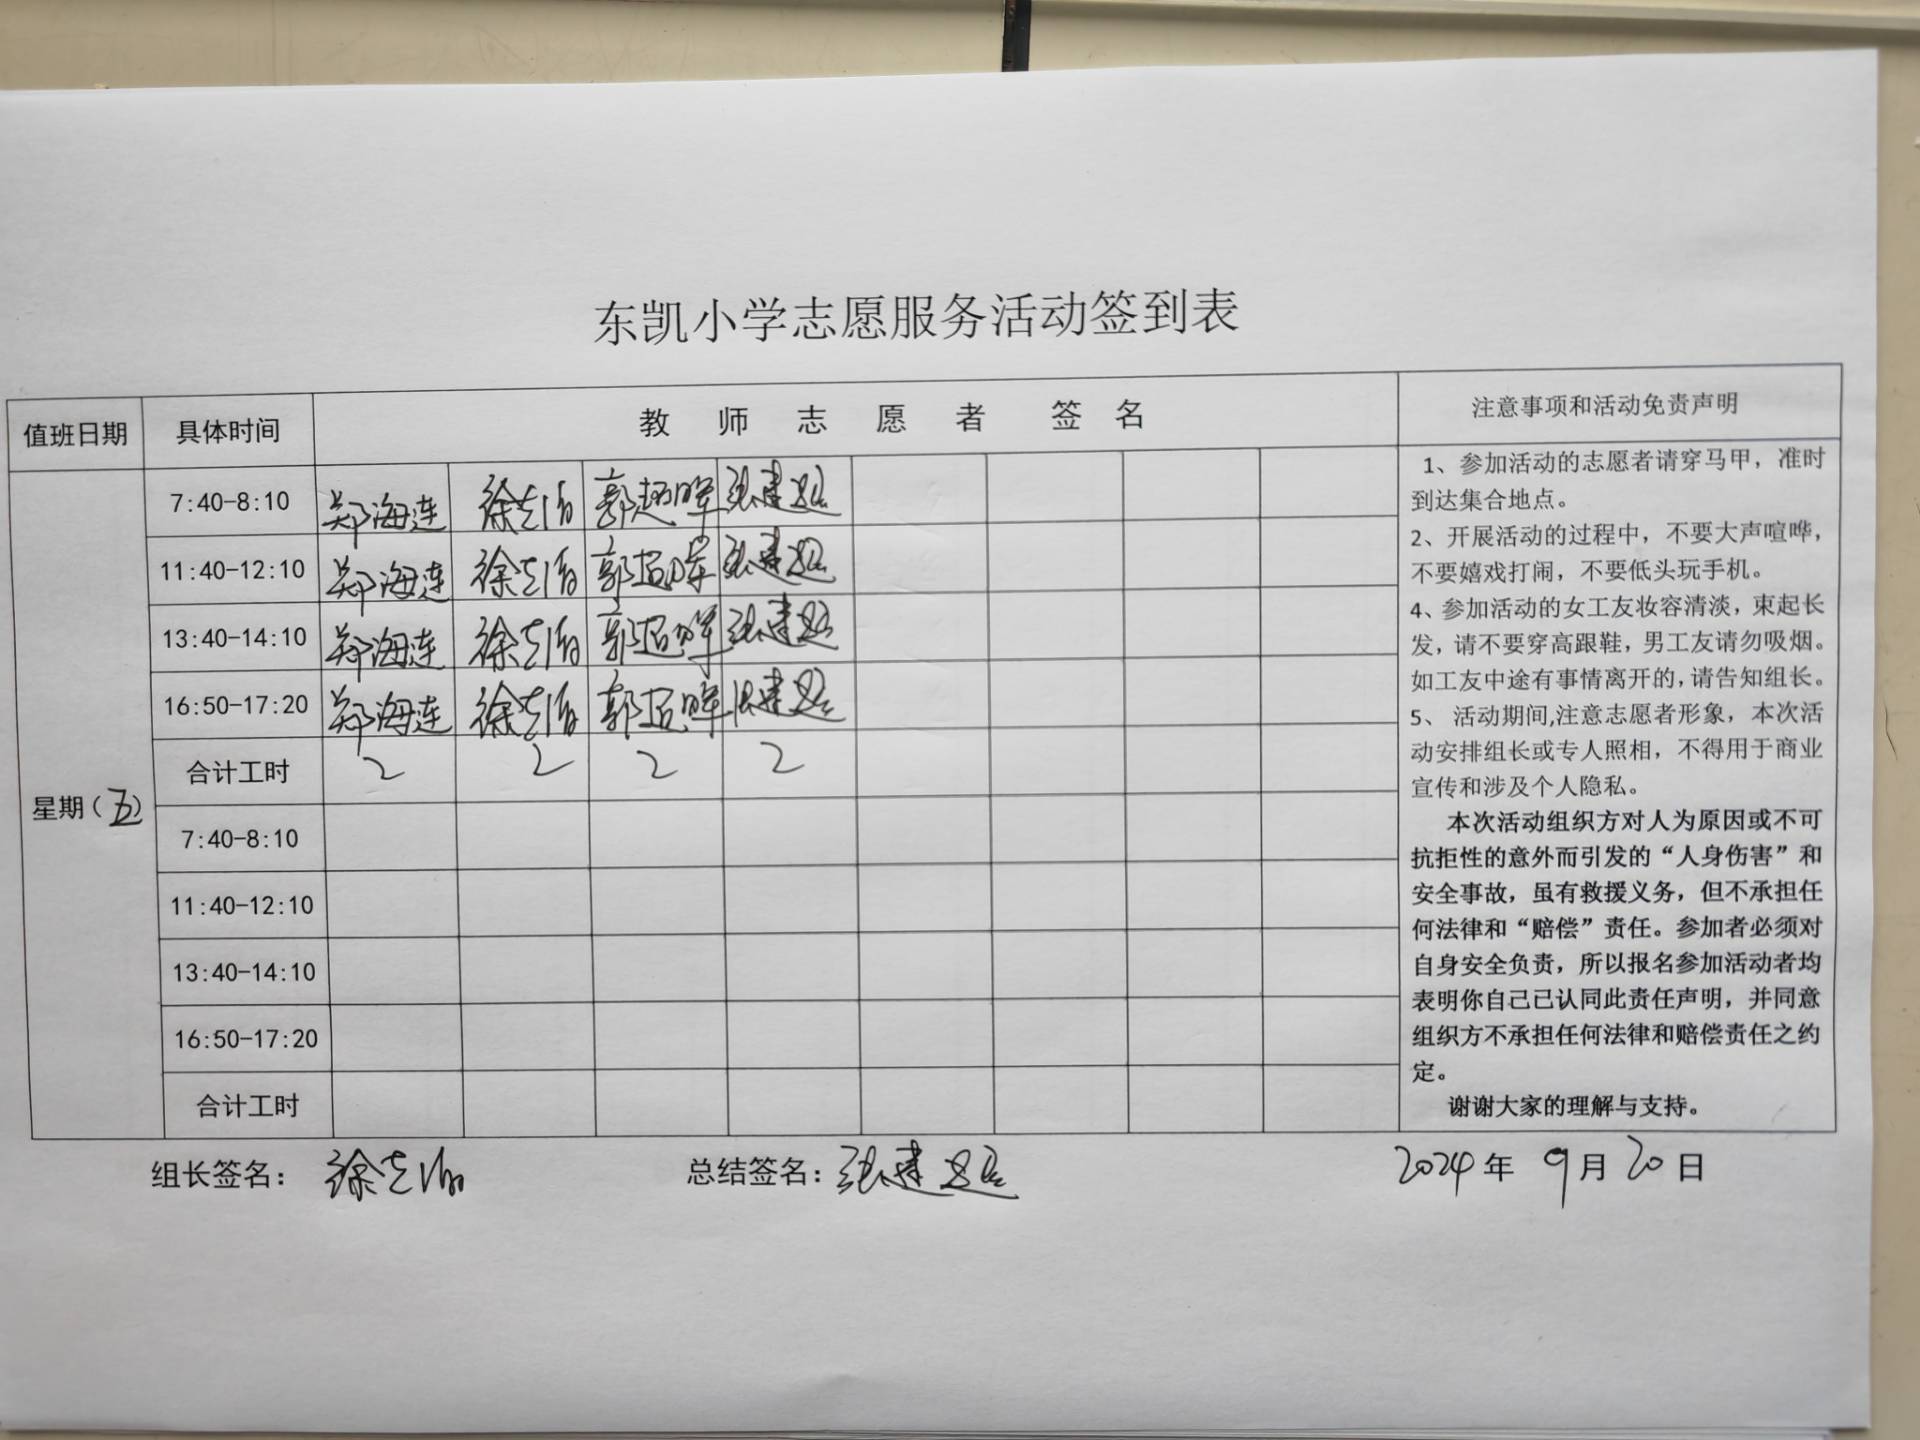 东凯小学志愿服务活动签到表
值班日期 具体时间 教师志愿者签名 注意事项和活动免责声明
星期（五）
7:40-8:10 郑海连 徐 郭超晖 张建
11:40-12:10 郑海连 徐 郭超晖 张建
13:40-14:10 郑海连 徐 郭超晖 张建
16:50-17:20 郑海连 徐 郭超晖 张建
合计工时 2 2 2 2
7:40-8:10
11:40-12:10
13:40-14:10
16:50-17:20
合计工时
1、参加活动的志愿者请穿马甲，准时
到达集合地点。
2、开展活动的过程中，不要大声喧哗，
不要嬉戏打闹，不要低头玩手机。
4、参加活动的女工友妆容清淡，束起长
发，请不要穿高跟鞋，男工友请勿吸烟。
如工友中途有事情离开的,请告知组长。
5、 活动期间,注意志愿者形象，本次活
动安排组长或专人照相，不得用于商业
宣传和涉及个人隐私。
本次活动组织方对人为原因或不可
抗拒性的意外而引发的“人身伤害”和
安全事故，虽有救援义务，但不承担任
何法律和“赔偿”责任。参加者必须对
自身安全负责，所以报名参加活动者均
表明你自己己认同此责任声明，并同意
组织方不承担任何法律和赔偿责任之约
定。
谢谢大家的理解与支持。
组长签名： 徐 总结签名：张建 2024年 9月20日